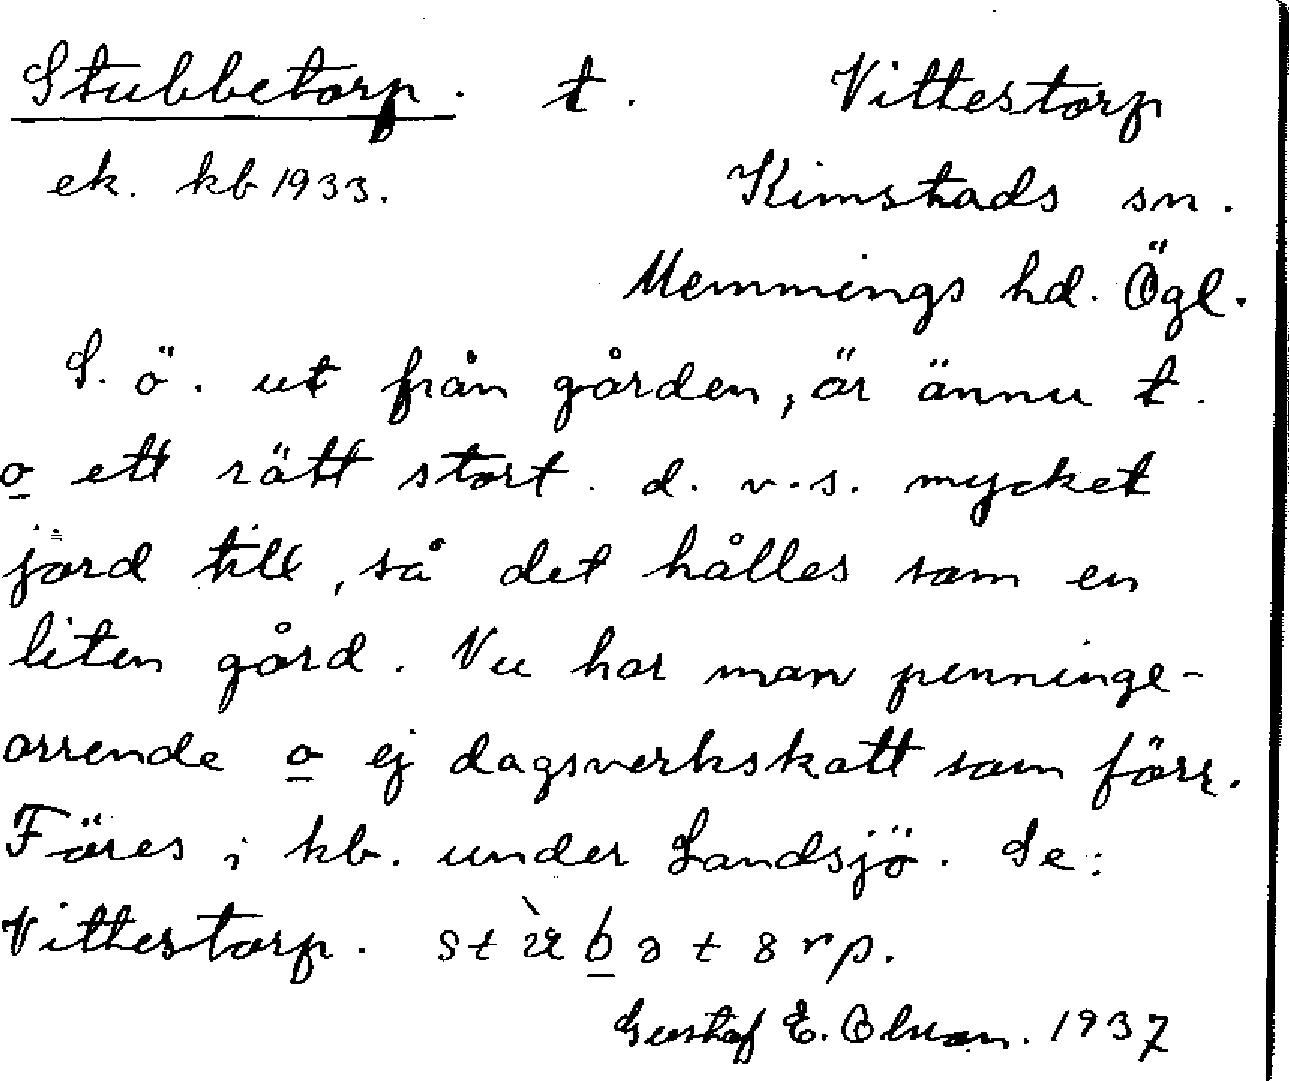 Stubbetorp. t. Vittestorp
ek. kb 1933. Kimstads sn.
Memmings hd. Ögl.
S. ö. ut från gården, är ännu t.
o ett rätt stort. d. v. s. mycket
jord till, så det hålles som en
liten gård. Nu har man penninge-
arrende o ej dagsverkskatt som förr.
Föres i kb. under Landsjö. Se:
Vittestorp.
Gustaf E. Olsson. 1937